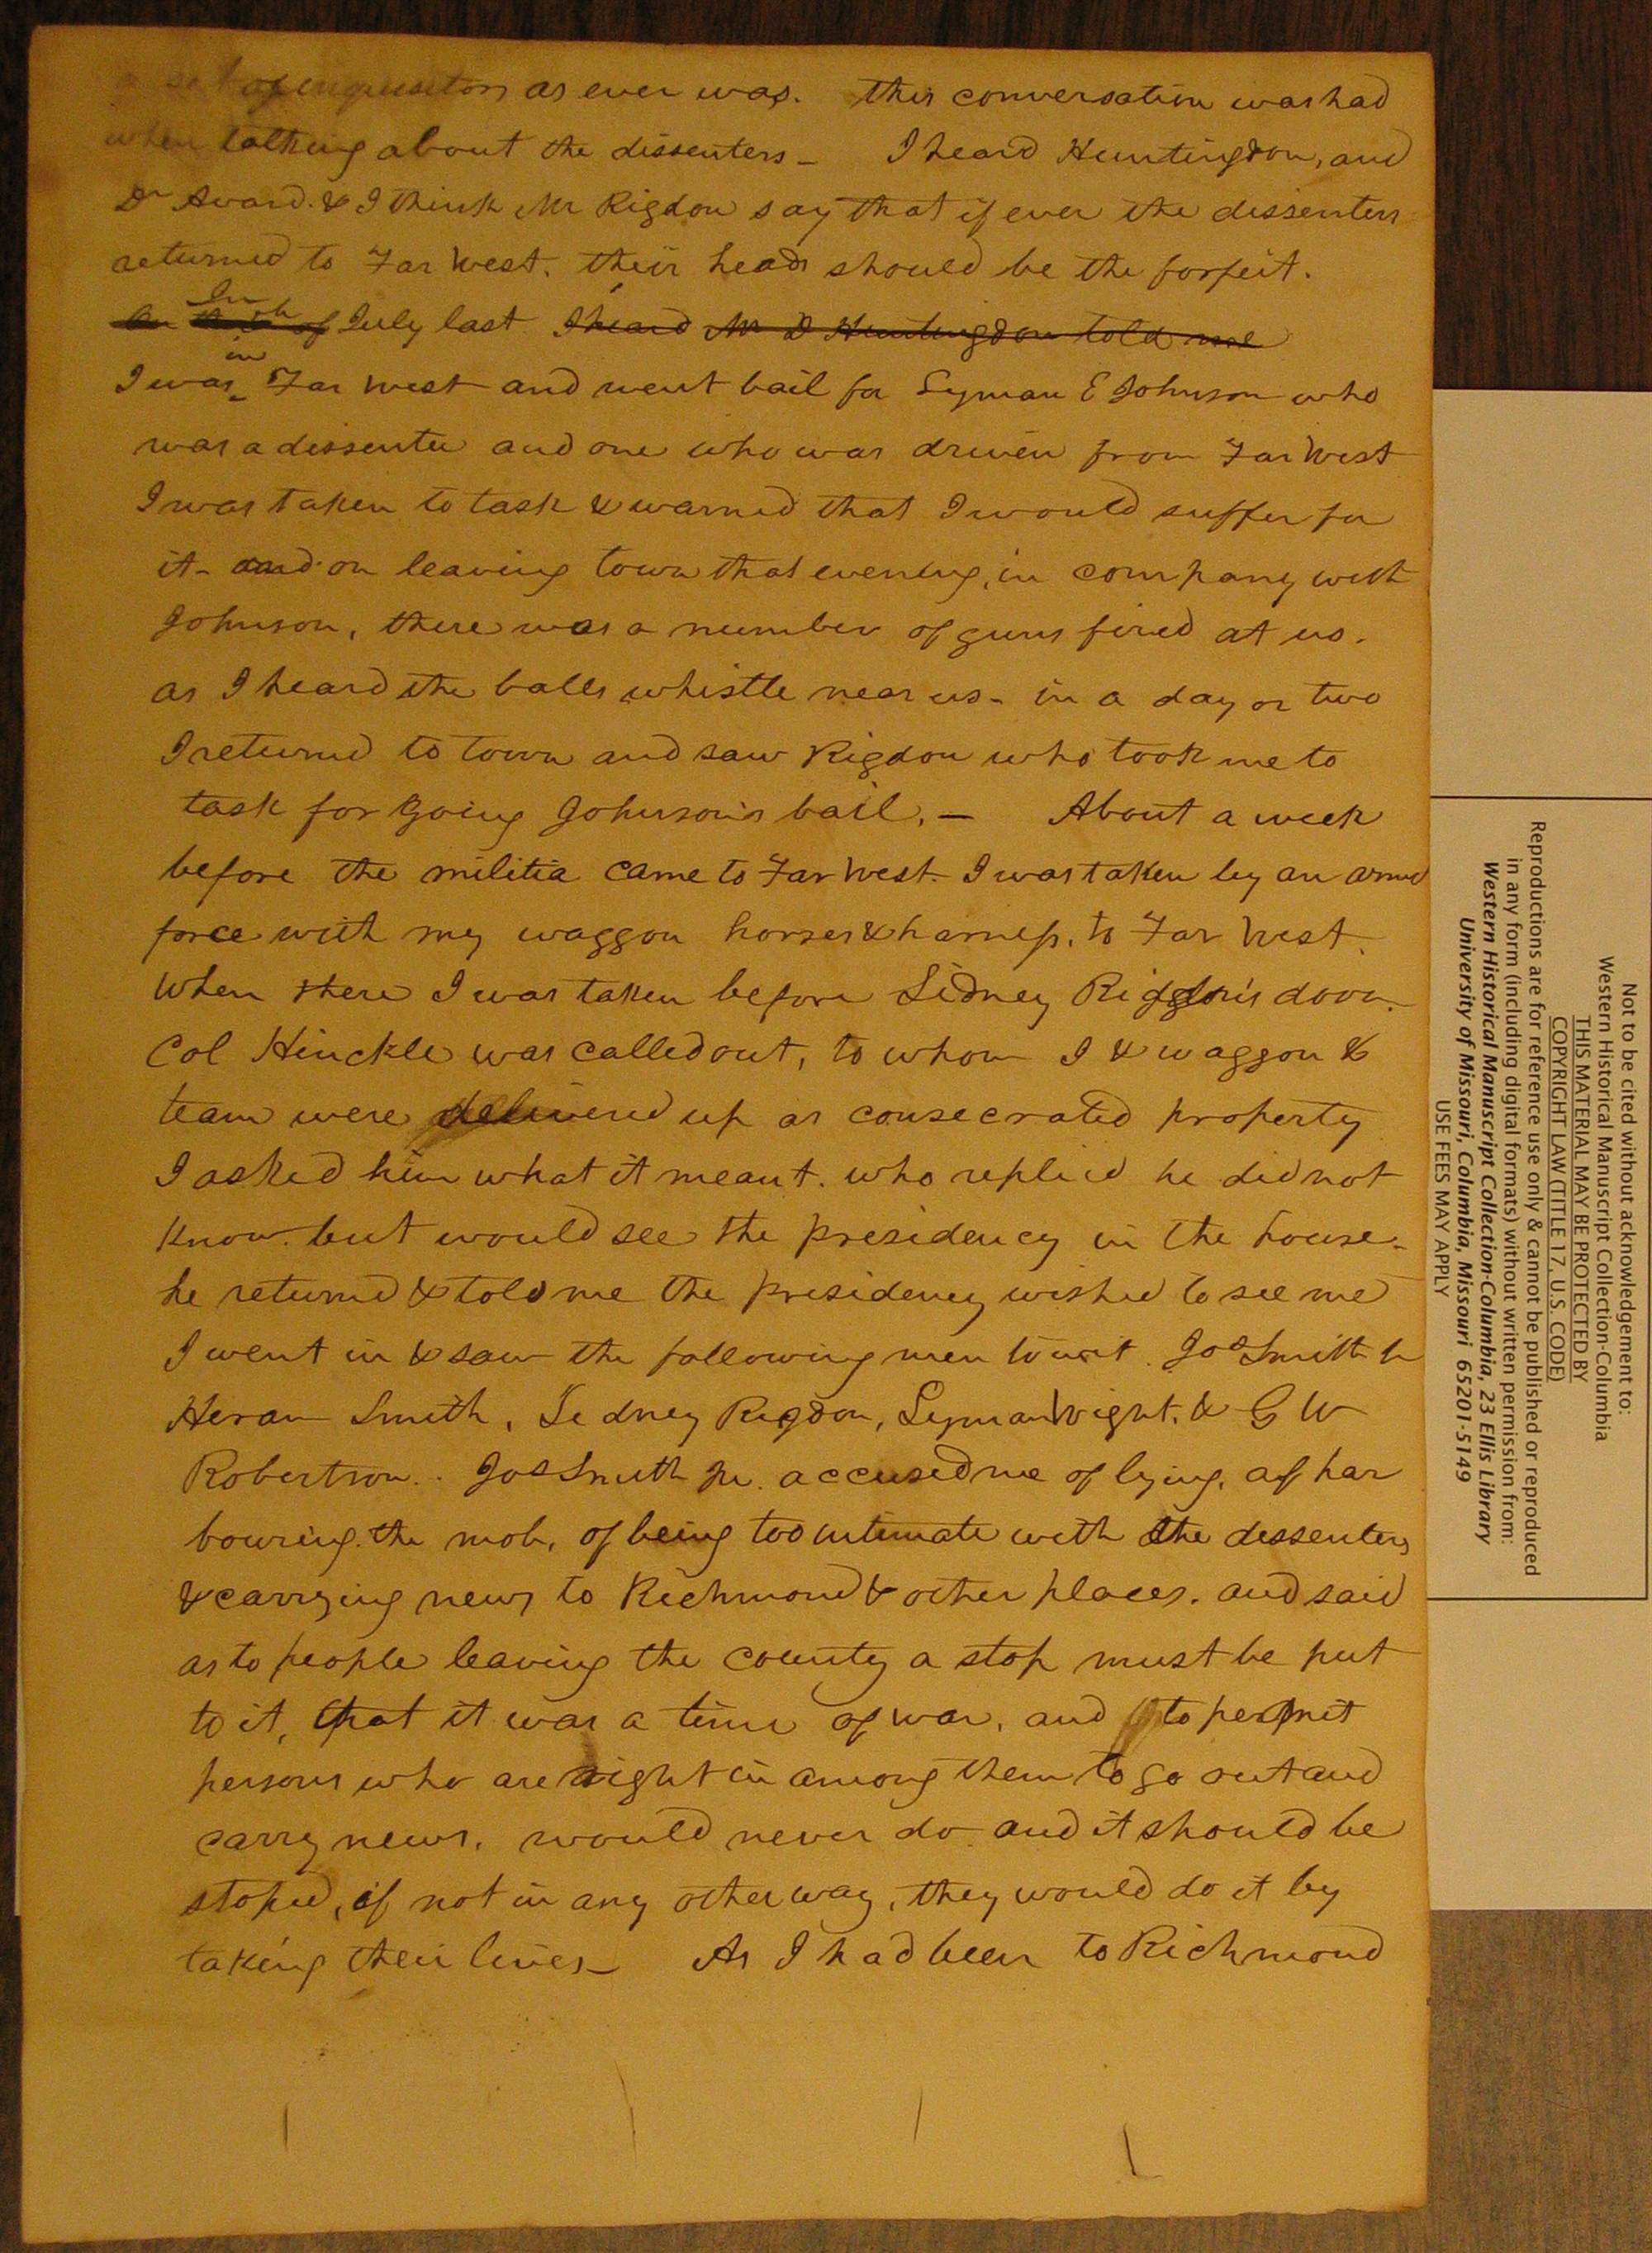 a set of inquisitors as ever was. this conversation was had
when talking about the dissenters - I heard Huntingdon, and
Dr Avard. & I think Mr Rigdon say that if ever the dissenters
returned to Far West. their heads should be the forfeit.
In
July last I heard Mr D Huntingdon told me
in
I was Far West and went bail for Lyman E Johnson who
was a dissenter and one who was driven from Far West
I was taken to task & warned that I would suffer for
it - and on leaving town that evening, in company with
Johnson, there was a number of guns fired at us.
as I heard the balls whistle near us - in a day or two
I returned to town and saw Rigdon who took me to
task for going Johnson's bail. — About a week
before the militia came to Far West. I was taken by an armed
force with my waggon horses & harness. to Far West.
When there I was taken before Sidney Rigdon's door.
Col Hinckle was called out, to whom I & waggon &
team were delivered up as consecrated property
I asked him what it meant. who replied he did not
know. but would see the presidency in the house -
he returned & told me the presidency wished to see me
I went in & saw the following men to wit. Jos Smith Jr
Heram Smith, Sidney Rigdon, Lyman Wight, & G W
Robertson.. Jos Smith Jr. accused me of lying, of har
bouring the mob, of being too intimate with the dissenters
& carrying news to Richmond & other places. and said
as to people leaving the county a stop must be put
to it, that it was a time of war, and to permit
persons who are right in among them to go out and
carry news, would never do and it should be
stoped, if not in any other way, they would do it by
taking their lives - As I had been to Richmond
Not to be cited without acknowledgement to:
Western Historical Manuscript Collection-Columbia
THIS MATERIAL MAY BE PROTECTED BY
COPYRIGHT LAW (TITLE 17, U.S. CODE)
Reproductions are for reference use only & cannot be published or reproduced
in any form (including digital formats) without written permission from:
Western Historical Manuscript Collection-Columbia, 23 Ellis Library
University of Missouri, Columbia, Missouri 65201-5149
USE FEES MAY APPLY